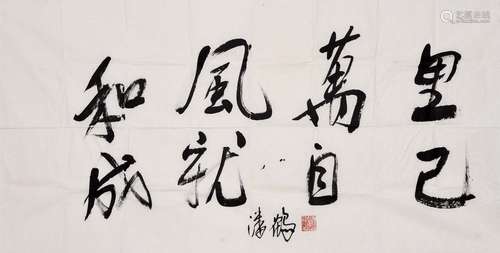 和風萬里
成就自己
潘鶴